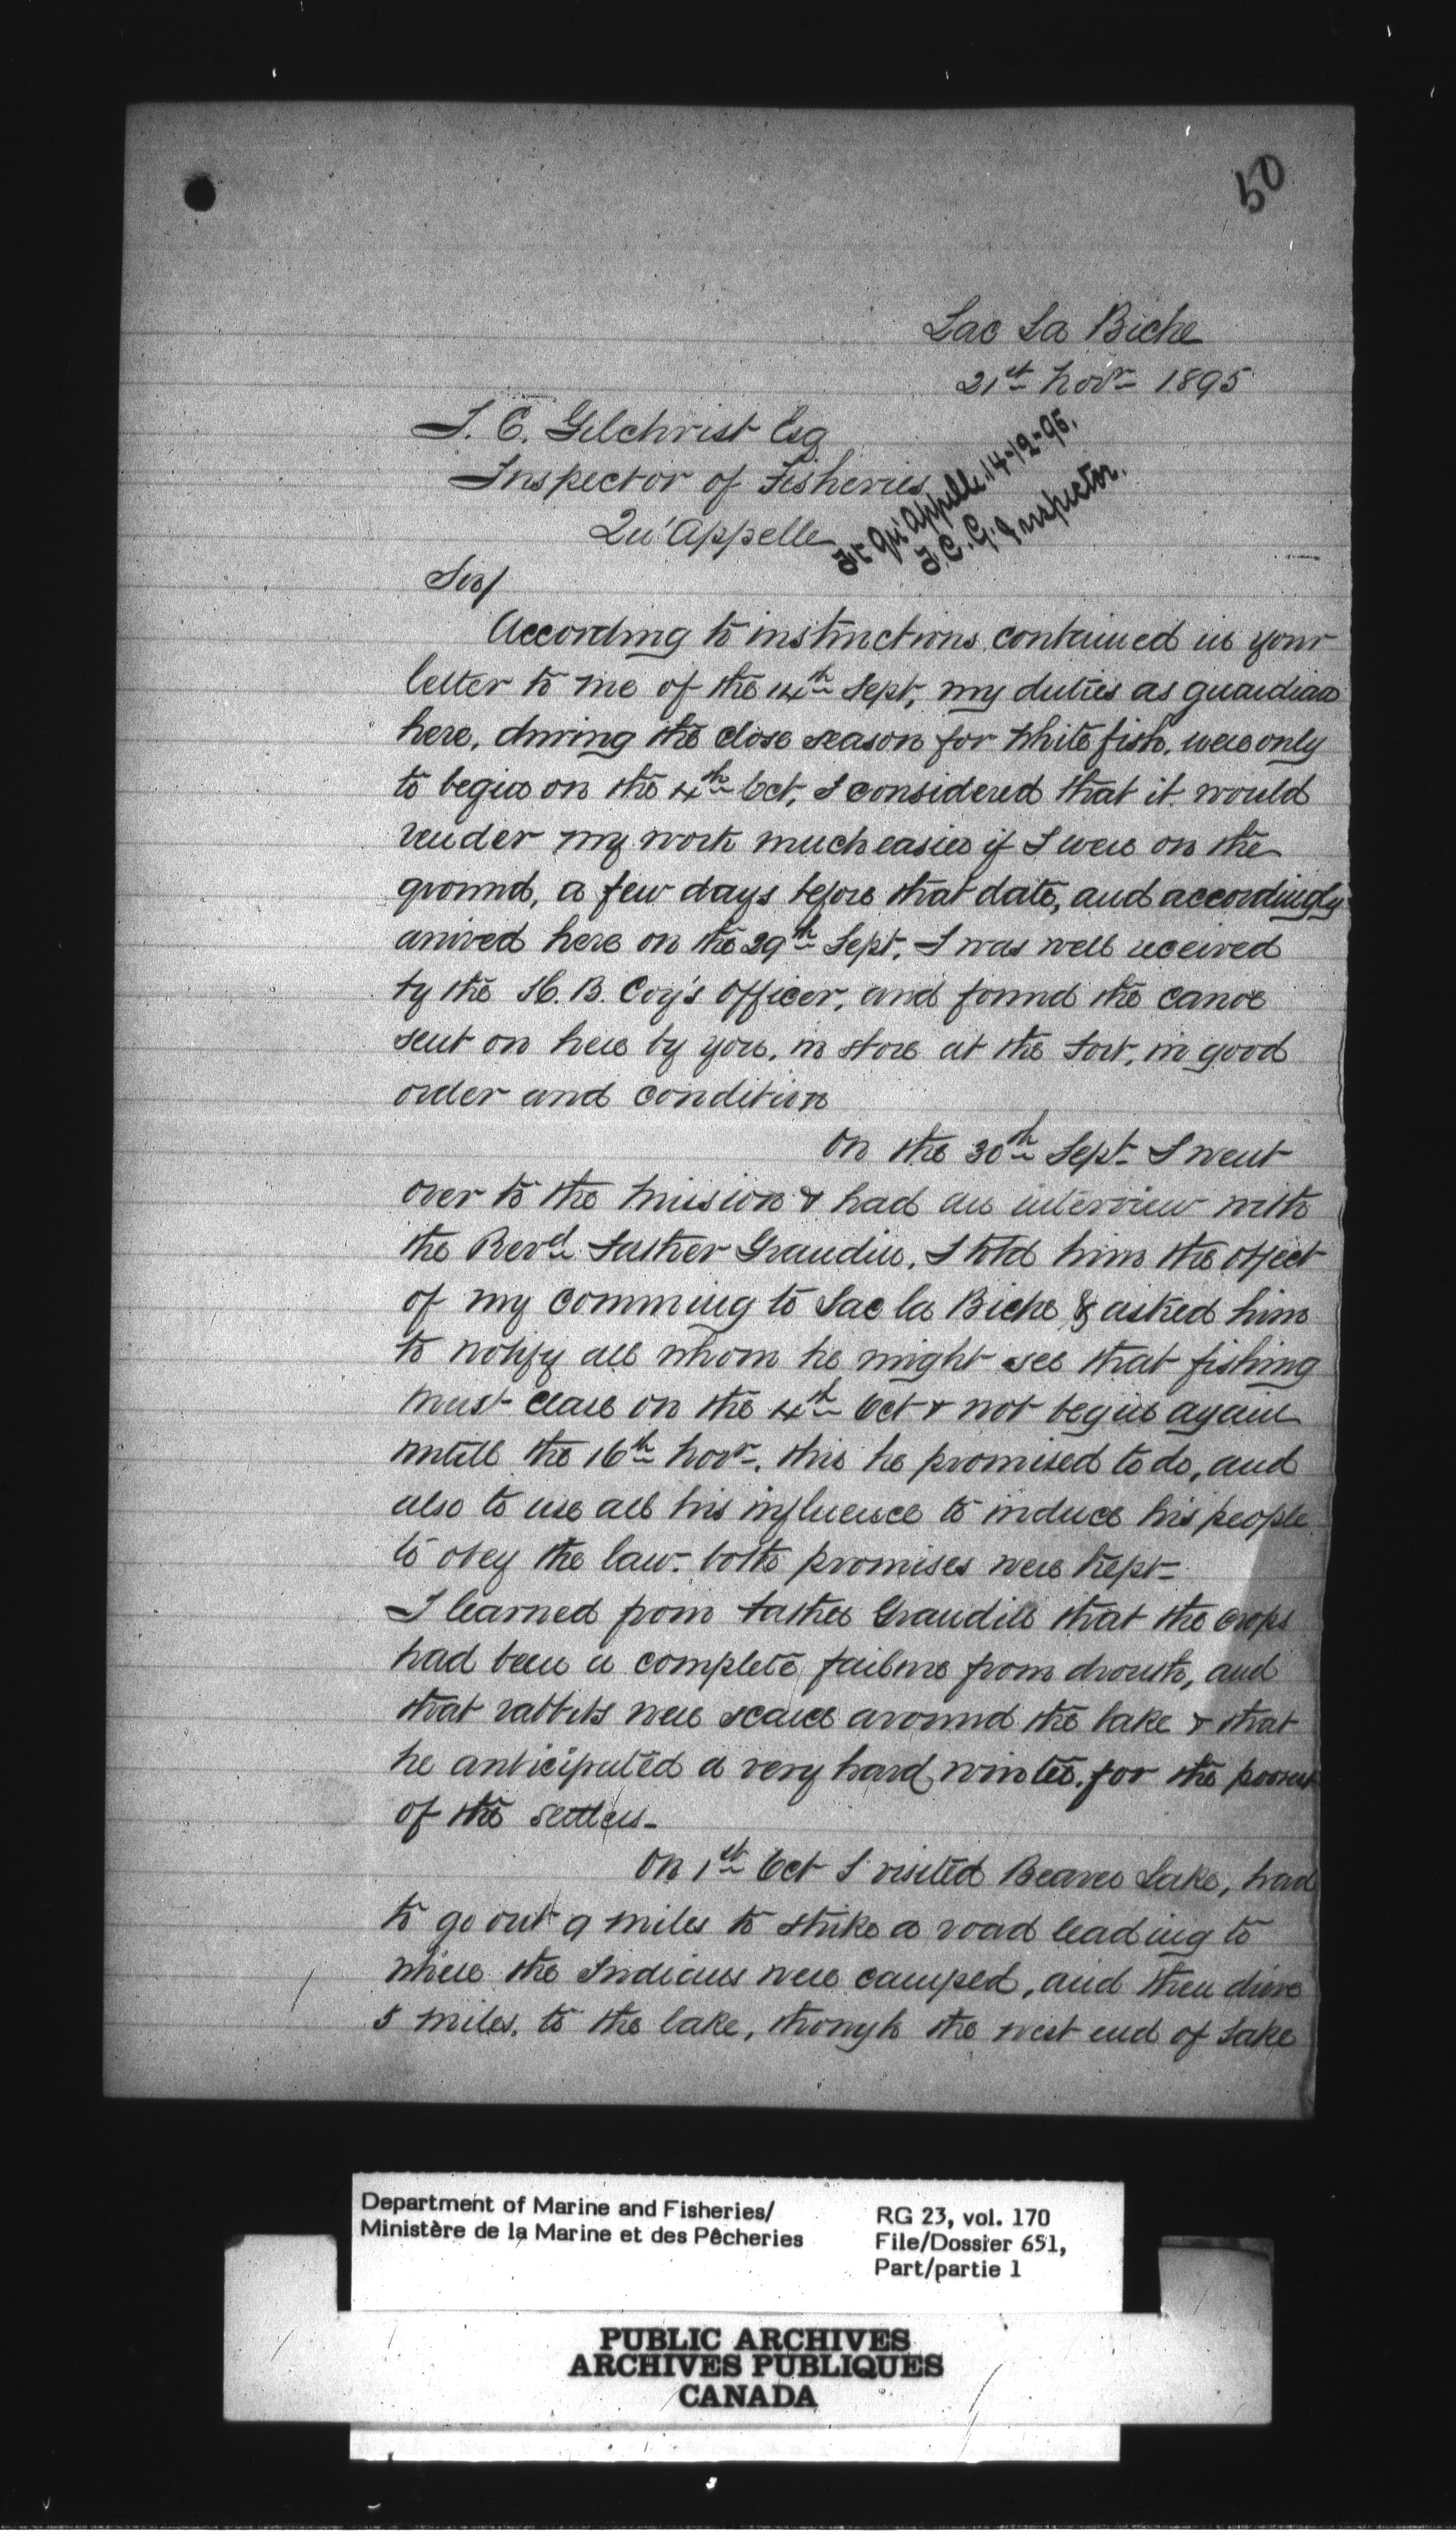 50
Lac La Biche
21st Novr 1895
F. C. Gilchrist Esq
Inspector of Fisheries
Qu'Appelle
Ft Qu'Appelle. 14-12-95.
F. C. G. Inspector.
Sir/
According to instructions contained in your
letter to me of the 14th Sept, my duties as guardian
here, during the close season for Whitefish, were only
to begin on the 4th Oct, I considered that it would
render my work much easier if I were on the
ground, a few days before that date, and accordingly
arrived here on the 29th Sept. I was well received
by the H. B. Coy's Officer, and found the canoe
sent on here by you, in store at the Fort, in good
order and condition
On the 30th Sept I went
over to the Mission & had an interview with
the Revd Father Grandin, I told him the object
of my comming to Lac la Biche & asked him
to notify all whom he might see that fishing
must cease on the 4th Oct & not begin again
untill the 16th Novr, this he promised to do, and
also to use all his influence to induce his people
to obey the law. both promises were kept-
I learned from Father Grandin that the crops
had been a complete failure from drouth, and
that rabbits were scarce around the lake & that
he anticipated a very hard winter, for the poorest
of the settlers-
On 1st Oct I visited Beaver Lake, had
to go out 9 miles to strike a road leading to
where the Indians were camped, and then drove
5 miles, to the lake, though the west end of Lake
Department of Marine and Fisheries/
Ministère de la Marine et des Pêcheries
RG 23, vol. 170
File/Dossier 651,
Part/partie 1
PUBLIC ARCHIVES
ARCHIVES PUBLIQUES
CANADA